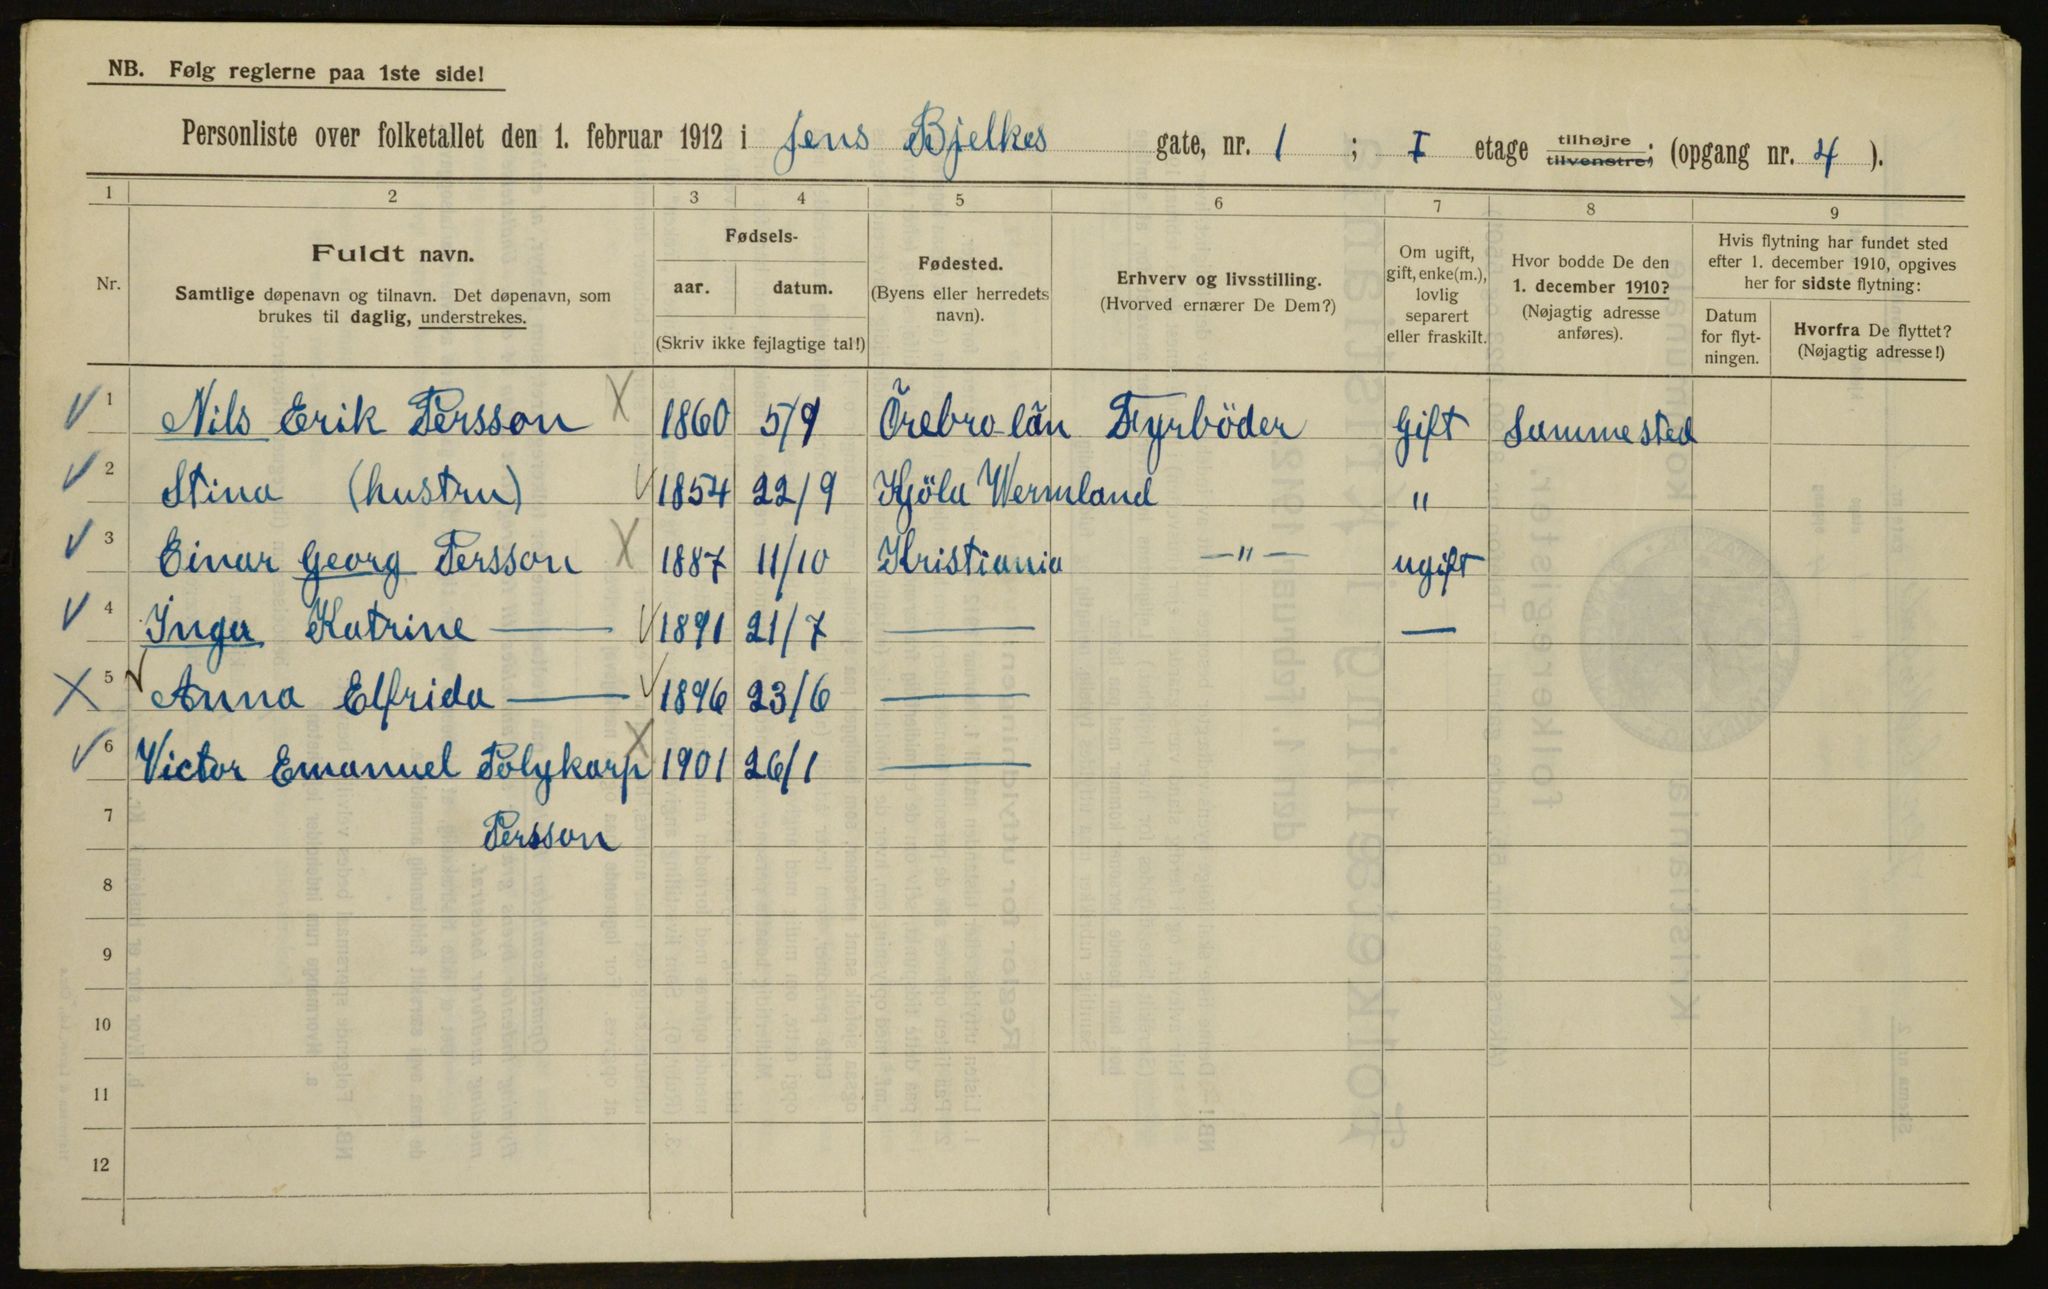 NB. Følg reglerne paa 1ste side!
Personliste over folketallet den 1. februar 1912 i Jens Bjelkes gate, nr. 1 ; I etage tilhøjre tilvenstre; (opgang nr. 4 ).
1 2 3 4 5 6 7 8 9
Nr.
Fuldt navn.
Samtlige døpenavn og tilnavn. Det døpenavn, som
brukes til daglig, understrekes.
Fødsels-
aar. datum.
(Skriv ikke fejlagtige tal!)
Fødested.
(Byens eller herredets
navn).
Erhverv og livsstilling.
(Hvorved ernærer De Dem?)
Om ugift,
gift, enke(m.),
lovlig
separert
eller fraskilt.
Hvor bodde De den
1. december 1910?
(Nøjagtig adresse
anføres).
Hvis flytning har fundet sted
efter 1. december 1910, opgives
her for sidste flytning:
Datum
for flyt-
ningen.
Hvorfra De flyttet?
(Nøjagtig adresse!)
1 Nils Erik Persson 1860 5/9 Örebro län Fyrböder Gift Sammested
2 Stina (hustru) 1854 22/9 Kjöla Wermland "
3 Einar Georg Persson 1887 11/10 Kristiania —"— ugift
4 Inga Katrine — 1891 21/7 — —
5 Anna Elfrida — 1896 23/6 —
6 Victor Emanuel Polykarp 1901 26/1 —
7 Persson
8
9
10
11
12